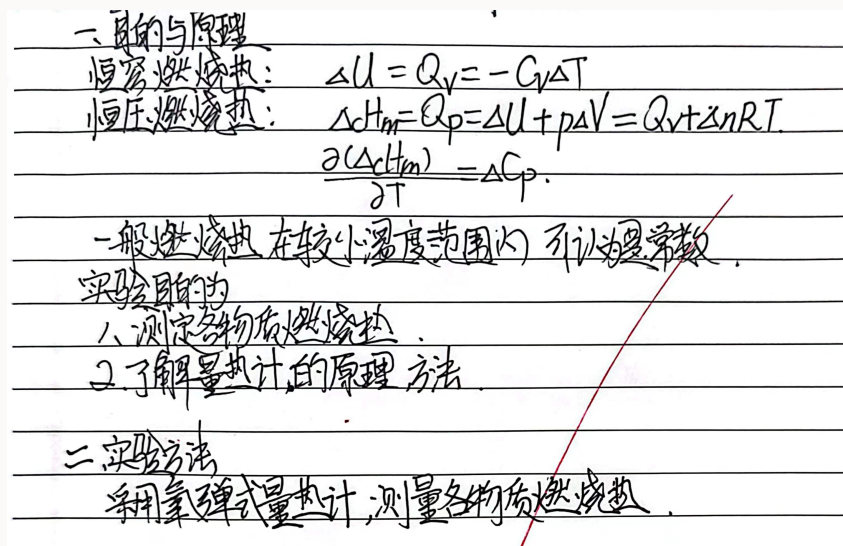 一、目的与原理
恒容燃烧热: ΔU = Qv = -CvΔT
恒压燃烧热: ΔcHm = Qp = ΔU + pΔV = Qv + ΔnRT.
∂(ΔcHm)/∂T = ΔCp.
一般燃烧热 在较小温度范围内 可认为是常数.
实验目的为
1、测定各物质燃烧热.
2.了解量热计的原理 方法.
二、实验方法
采用氧弹式量热计,测量各物质燃烧热.